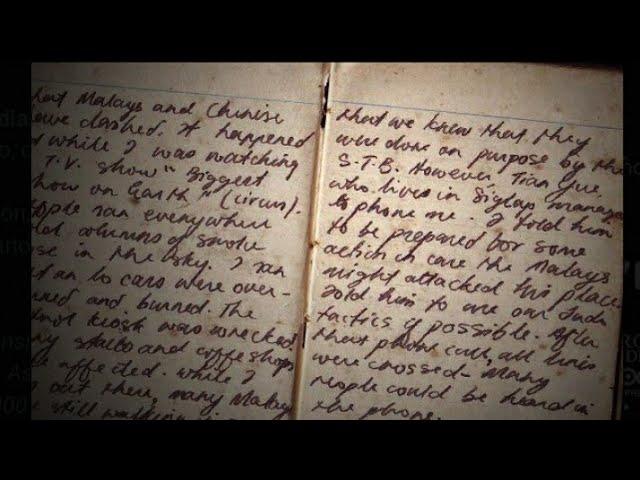 hat Malays and Chinese
ave clashed. It happened
while I was watching
T.V. show "Biggest
how on Earth" (circus).
ople ran everywhere
columns of smoke
se in the sky. I ran
cars were over-
ned and burned. The
kiosk was wrecked
ny stalls and coffeeshops
e affected. While I
out there, many Malay
still walking
that we knew that they
were done on purpose by the
S.T.B. However Tian
who lives in Siglap manage
to phone me. I told him
to be prepared for some
action in case the Malays
might attacked his place
told him to use our Judo
tactics if possible. After
that phone call, all lines
were crossed - Many
people could be heard in
the phone.